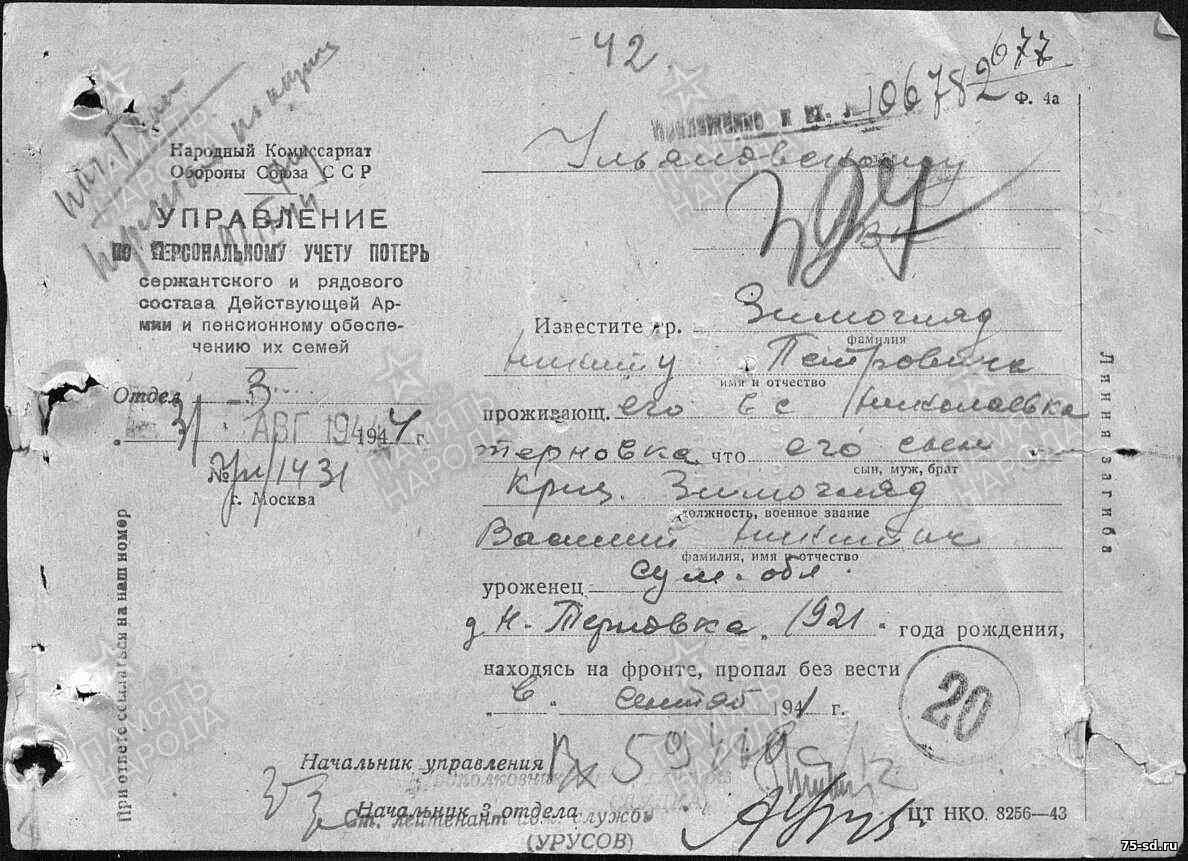 42
677
106782
Ф. 4а
Народный Комиссариат
Обороны Союза ССР
УПРАВЛЕНИЕ
ПО ПЕРСОНАЛЬНОМУ УЧЕТУ ПОТЕРЬ
сержантского и рядового
состава Действующей Ар-
мии и пенсионному обеспе-
чению их семей
Отдел 3
31 АВГ 194 1944 г.
№ 1431
г. Москва
При ответе ссылаться на наш номер
Ульяновскому
Известите гр. Зимогляд
фамилия
Никиту Петровича
имя и отчество
проживающ. его в с Николаевка
терновка что его сын
сын, муж, брат
Кр-ц. Зимогляд
должность, военное звание
Василий Никитич
фамилия, имя и отчество
уроженец Сум. обл.
д Н. Терновка 1921 года рождения,
находясь на фронте, пропал без вести
" в " сентяб 1941 г.
20
Начальник управления
Начальник 3 отдела
Ст. лейтенант адм. службы
(УРУСОВ)
ЦТ НКО. 8256—43
Линия загиба
ПАМЯТЬ
НАРОДА
75-sd.ru